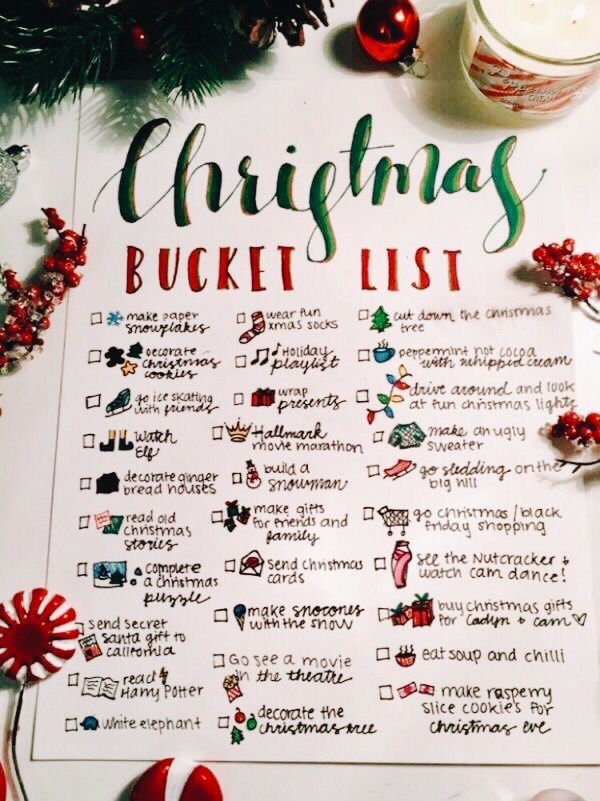 Christmas
BUCKET LIST
make paper
snowflakes
decorate
christmas
cookies
go ice skating
with friends
Watch
Elf
decorate ginger
bread houses
read old
christmas
stories
complete
a christmas
puzzle
send secret
santa gift to
california
react
Harry Potter
white elephant
wear fun
xmas socks
Holiday
playlist
wrap
presents
Hallmark
movie marathon
build a
snowman
make gifts
for friends and
family
send christmas
cards
make snocones
with the snow
Go see a movie
in the theatre
decorate the
christmas tree
cut down the christmas
tree
peppermint hot cocoa
with whipped cream
drive around and look
at fun christmas lights
make an ugly
sweater
go sledding on the
big hill
go christmas/black
friday shopping
see the Nutcracker +
watch cam dance!
buy christmas gifts
for cadyn + cam
eat soup and chilli
make rasperry
slice cookies for
christmas eve